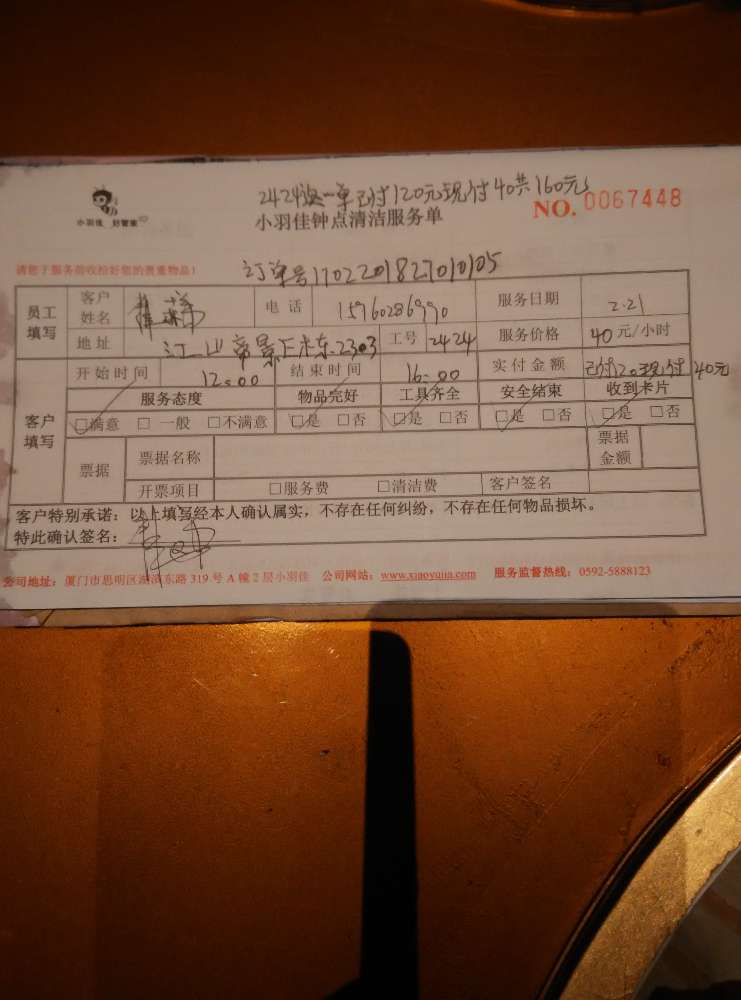 2424 一单已付120元现付40共160元
小羽佳 好管家
小羽佳钟点清洁服务单
NO. 0067448
请您于服务前收拾好您的贵重物品!
订单号1702201827010105
员工填写 客户姓名 电话 15960286990 服务日期 2.21
地址 江山帝景 2303 工号 2424 服务价格 40元/小时
客户填写 开始时间 12:00 结束时间 16:00 实付金额 已付120现付40元
服务态度 物品完好 工具齐全 安全结束 收到卡片
□满意 □一般 □不满意 □是 □否 □是 □否 □是 □否 □是 □否
票据 票据名称 票据金额
开票项目 □服务费 □清洁费 客户签名
客户特别承诺:以上填写经本人确认属实,不存在任何纠纷,不存在任何物品损坏。
特此确认签名:
公司地址:厦门市思明区湖滨东路 319 号 A 幢 2 层小羽佳 公司网站:www.xiaoyujia.com 服务监督热线:0592-5888123